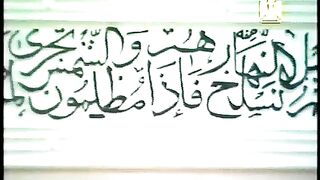 نسلخ منه النهار فإذا هم مظلمون والشمس تجري